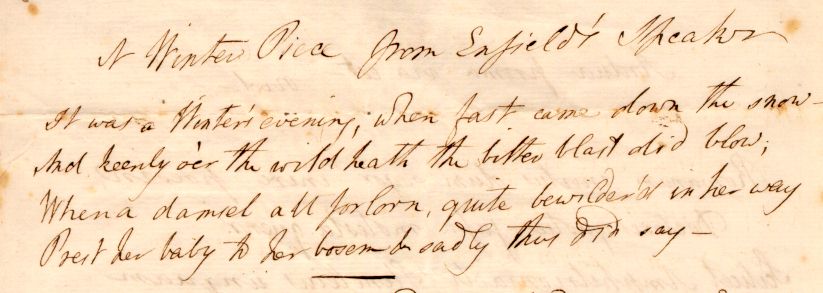 A Winter Piece from Enfield's Speaker
It was a Winter's evening, when fast came down the snow—
And keenly o'er the wild heath the bitter blast did blow;
When a damsel all forlorn, quite bewilder'd in her way
Prest her baby to her bosom & sadly thus did say—